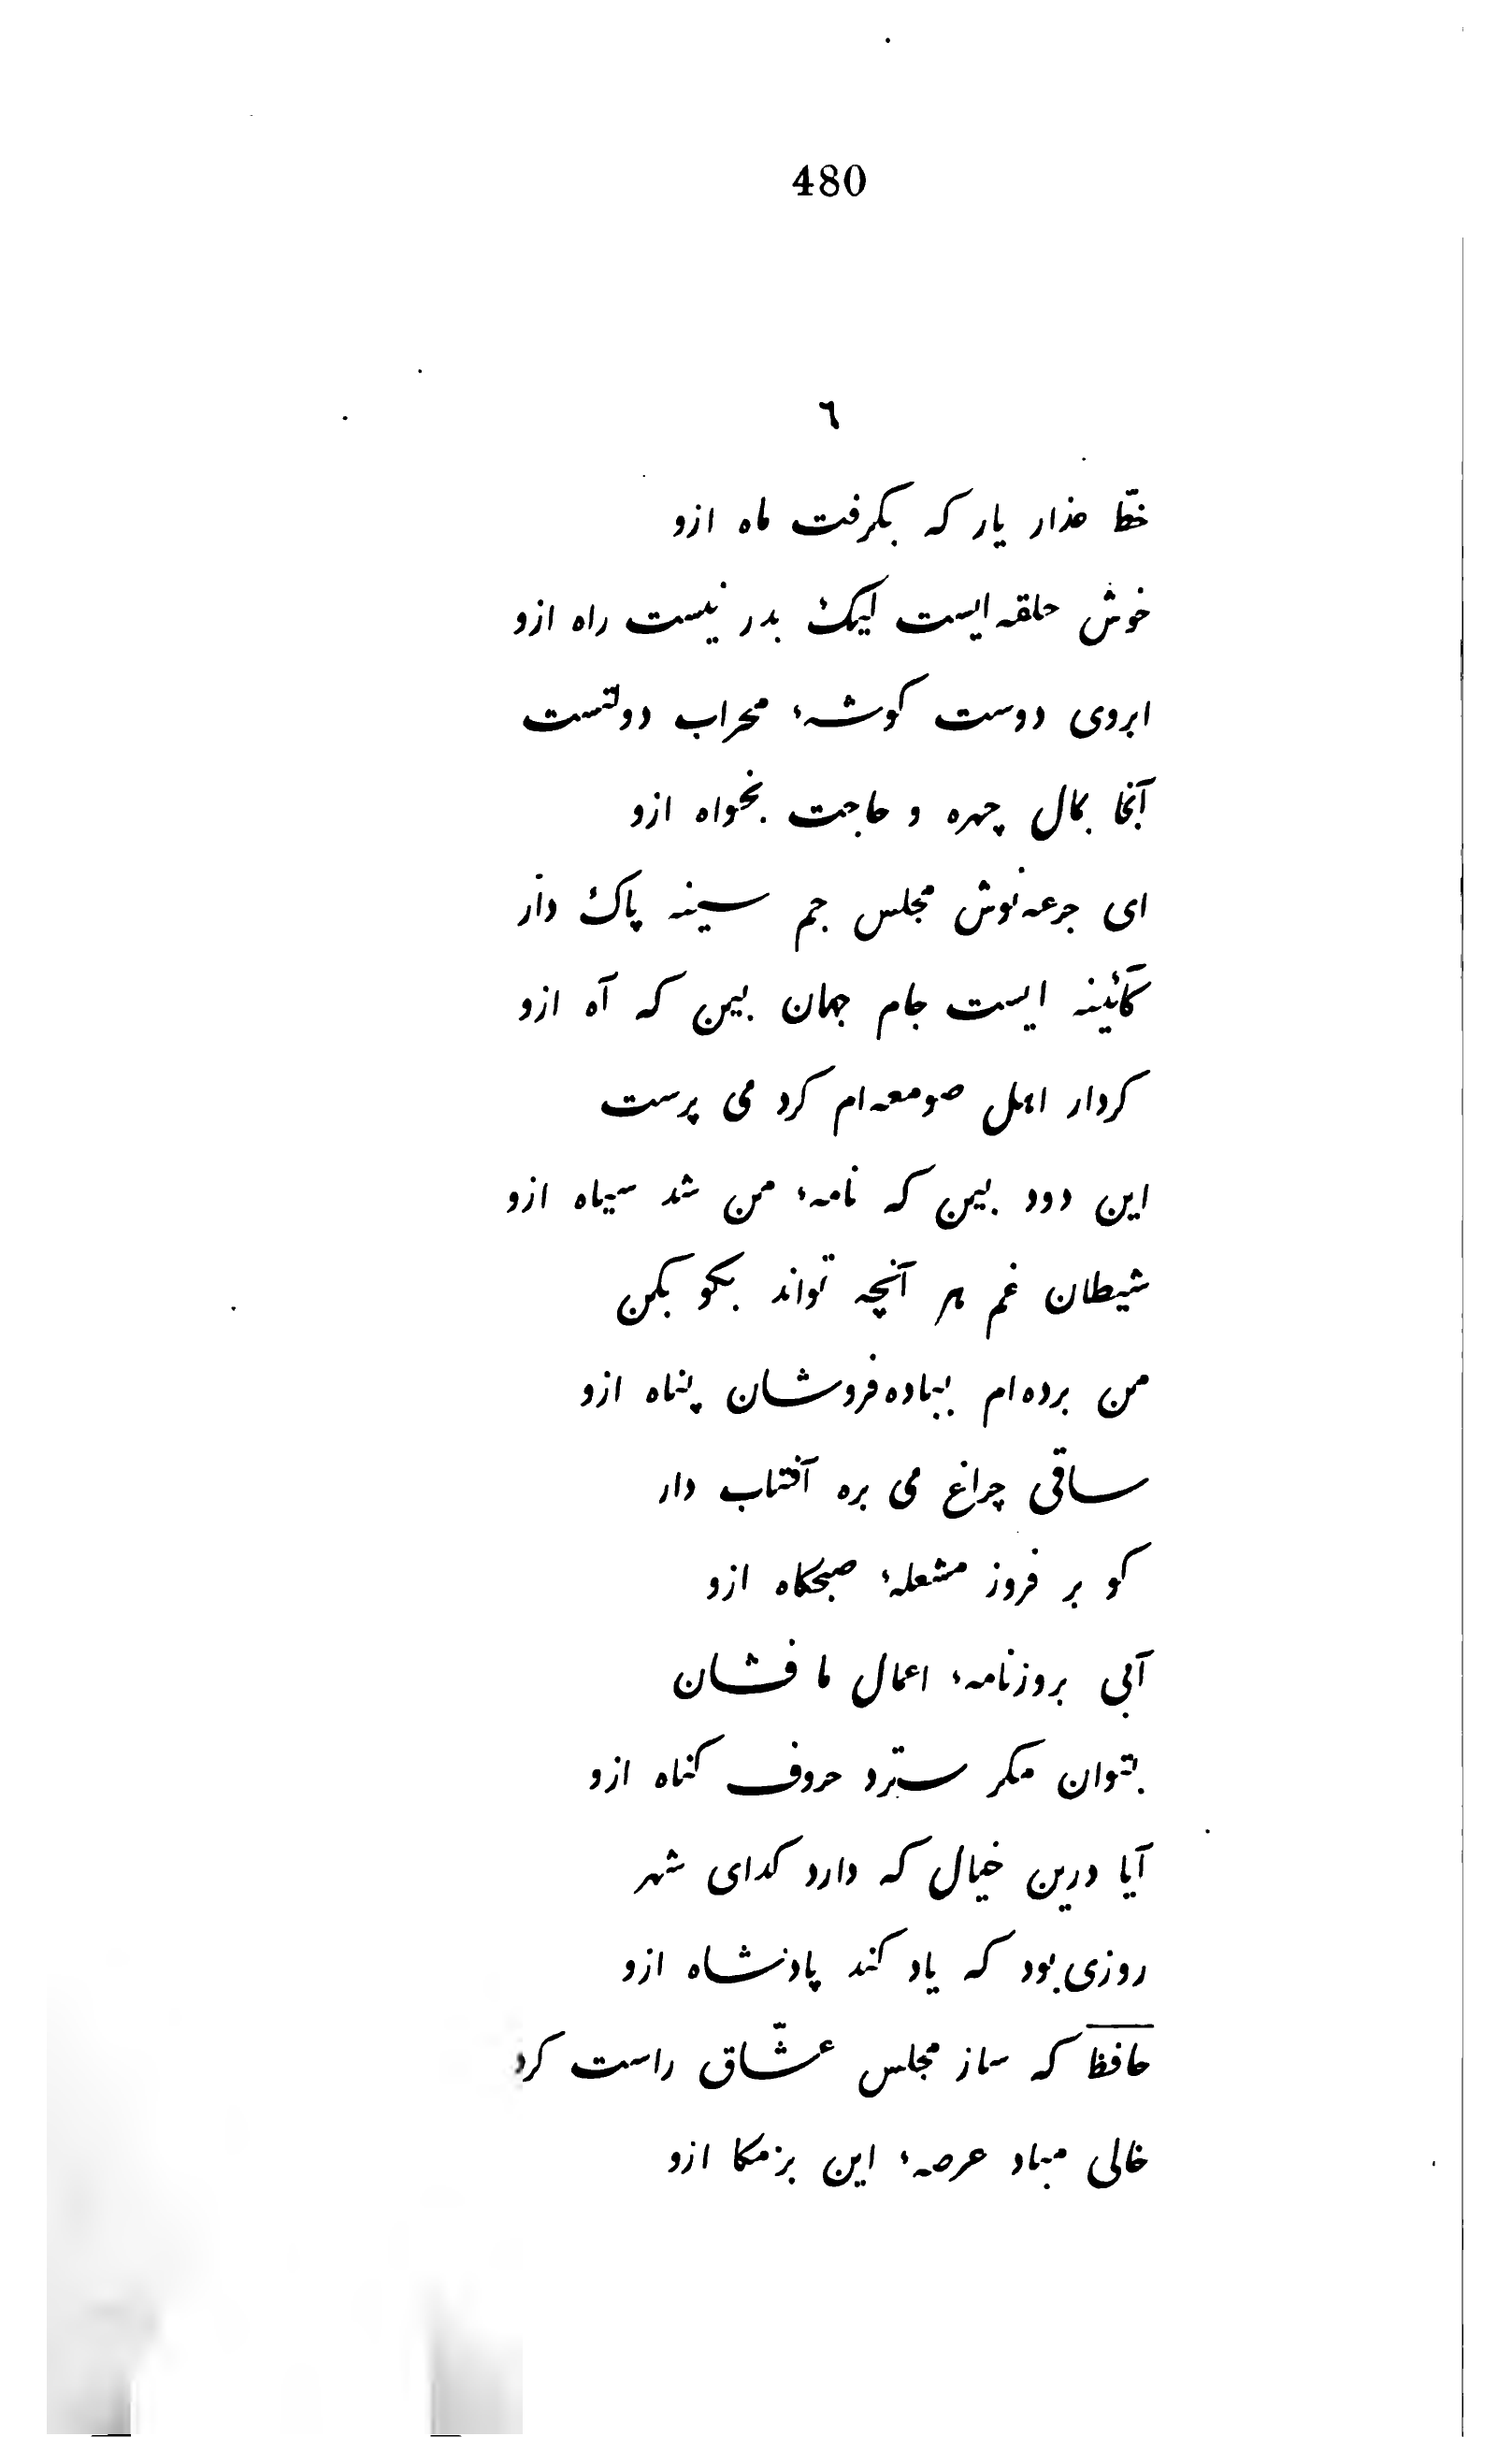 480
٦
خطّ عذار یار که بکرفت ماه ازو
خوش حلقه ایست لیک بدر نیست راه ازو
ابروی دوست کوشهٔ محراب دولتست
آنجا بمال چهره و حاجت بخواه ازو
ای جرعه نوش مجلس جم سینه پاک دار
کآئینه ایست جام جهان بین که آه ازو
کردار اهل صومعه ام کرد می پرست
این دود بین که نامهٔ من شد سیاه ازو
شیطان غم هر آنچه تواند بکو بکن
من برده ام بباده فروشان پناه ازو
ساقی چراغ می بره آفتاب دار
کو بر فروز مشعلهٔ صبحکاه ازو
آبی بروزنامهٔ اعمال ما فشان
بتوان مکر سترد حروف کناه ازو
آیا درین خیال که دارد کدای شهر
روزی بود که یاد کند پادشاه ازو
حافظ که ساز مجلس عشّاق راست کرد
خالی مباد عرصهٔ این بزمکا ازو